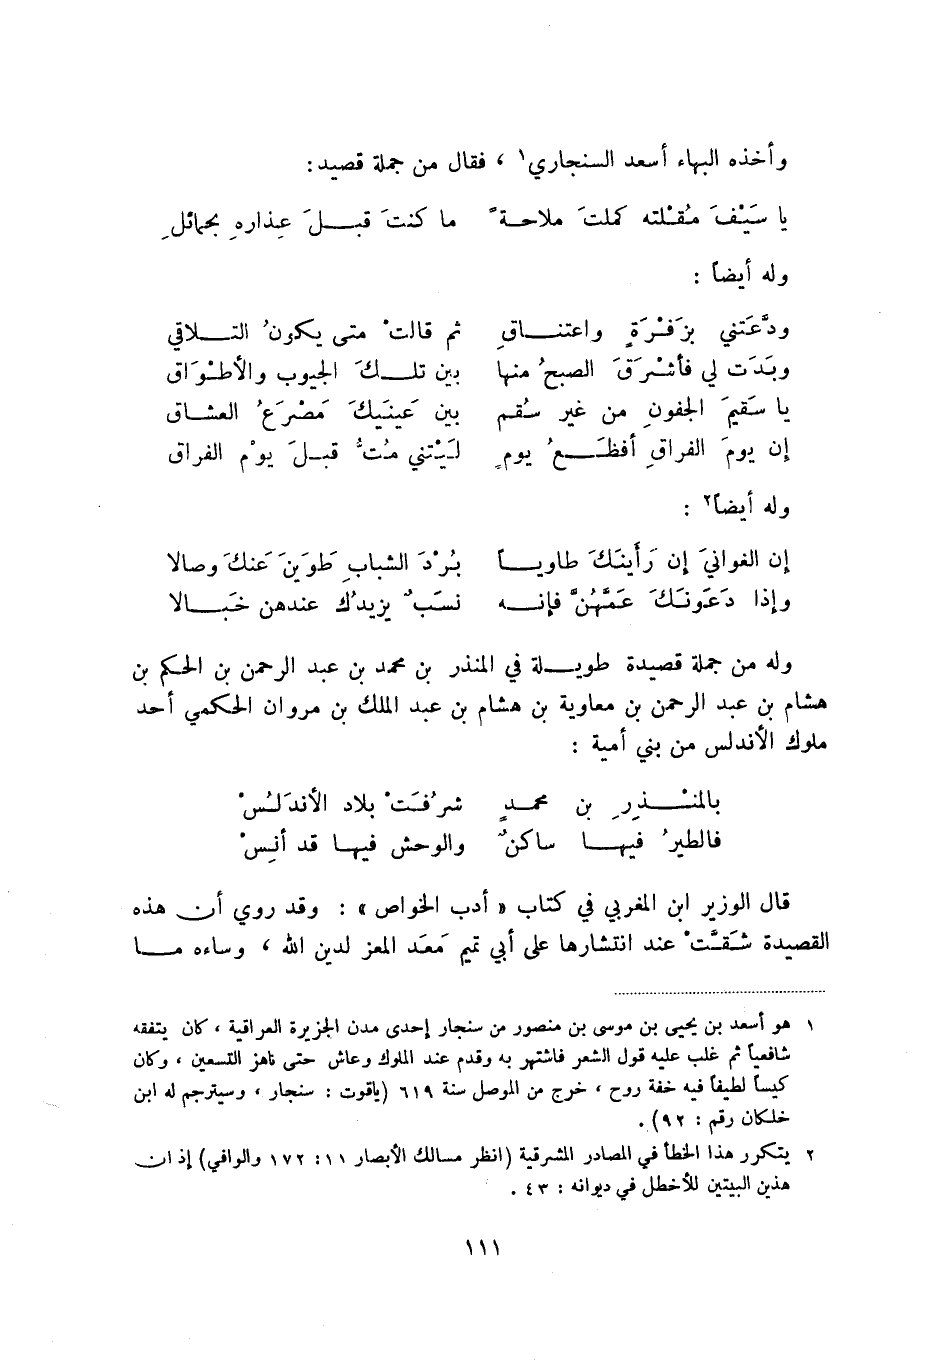 وأخذه البهاء أسعد السنجاري١ ، فقال من جملة قصيد :
يا سَيْفَ مُقْلته كملتَ ملاحةً ما كنتَ قبلَ عِذاره بحمائلِ
وله أيضاً :
ودَّعَتني بزَفْرَةٍ واعتناقِ ثم قالتْ متى يكونُ التلاقي
وبَدَت لي فأشْرَقَ الصبحُ منها بين تلكَ الجيوب والأطْوَاق
يا سَقيمَ الجفونِ من غير سُقم بين عَينيكَ مَصْرَعُ العشاق
إن يومَ الفراقِ أفظَعُ يومٍ لَيْتني مُتُّ قبلَ يوْم الفراق
وله أيضاً٢ :
إن الغوانيَ إن رَأينَكَ طاوياً بُرْدَ الشبابِ طَوَينَ عَنكَ وصالا
وإذا دَعَونَكَ عَمَّهُنَّ فإنه نسَبٌ يزيدُك عندهن خَبَالا
وله من جملة قصيدة طويلة في المنذر بن محمد بن عبد الرحمن بن الحكم بن
هشام بن عبد الرحمن بن معاوية بن هشام بن عبد الملك بن مروان الحكمي أحد
ملوك الأندلس من بني أمية :
بالمنْذِرِ بن محمدٍ شرُفَتْ بلاد الأندَلُسْ
فالطيرُ فيها ساكنٌ والوحش فيها قد أنِسْ
قال الوزير ابن المغربي في كتاب « أدب الخواص » : وقد روي أن هذه
القصيدة شَقَّتْ عند انتشارها على أبي تميم مَعَد المعز لدين الله ، وساءه ما
١ هو أسعد بن يحيى بن موسى بن منصور من سنجار إحدى مدن الجزيرة العراقية ، كان يتفقه
شافعياً ثم غلب عليه قول الشعر فاشتهر به وقدم عند الملوك وعاش حتى ناهز التسعين ، وكان
كيساً لطيفاً فيه خفة روح ، خرج من الموصل سنة ٦١٩ (ياقوت : سنجار ، وسيترجم له ابن
خلكان رقم : ٩٢) .
٢ يتكرر هذا الخطأ في المصادر المشرقية (انظر مسالك الأبصار ١١ : ١٧٢ والوافي) إذ ان
هذين البيتين للأخطل في ديوانه : ٤٣ .
١١١